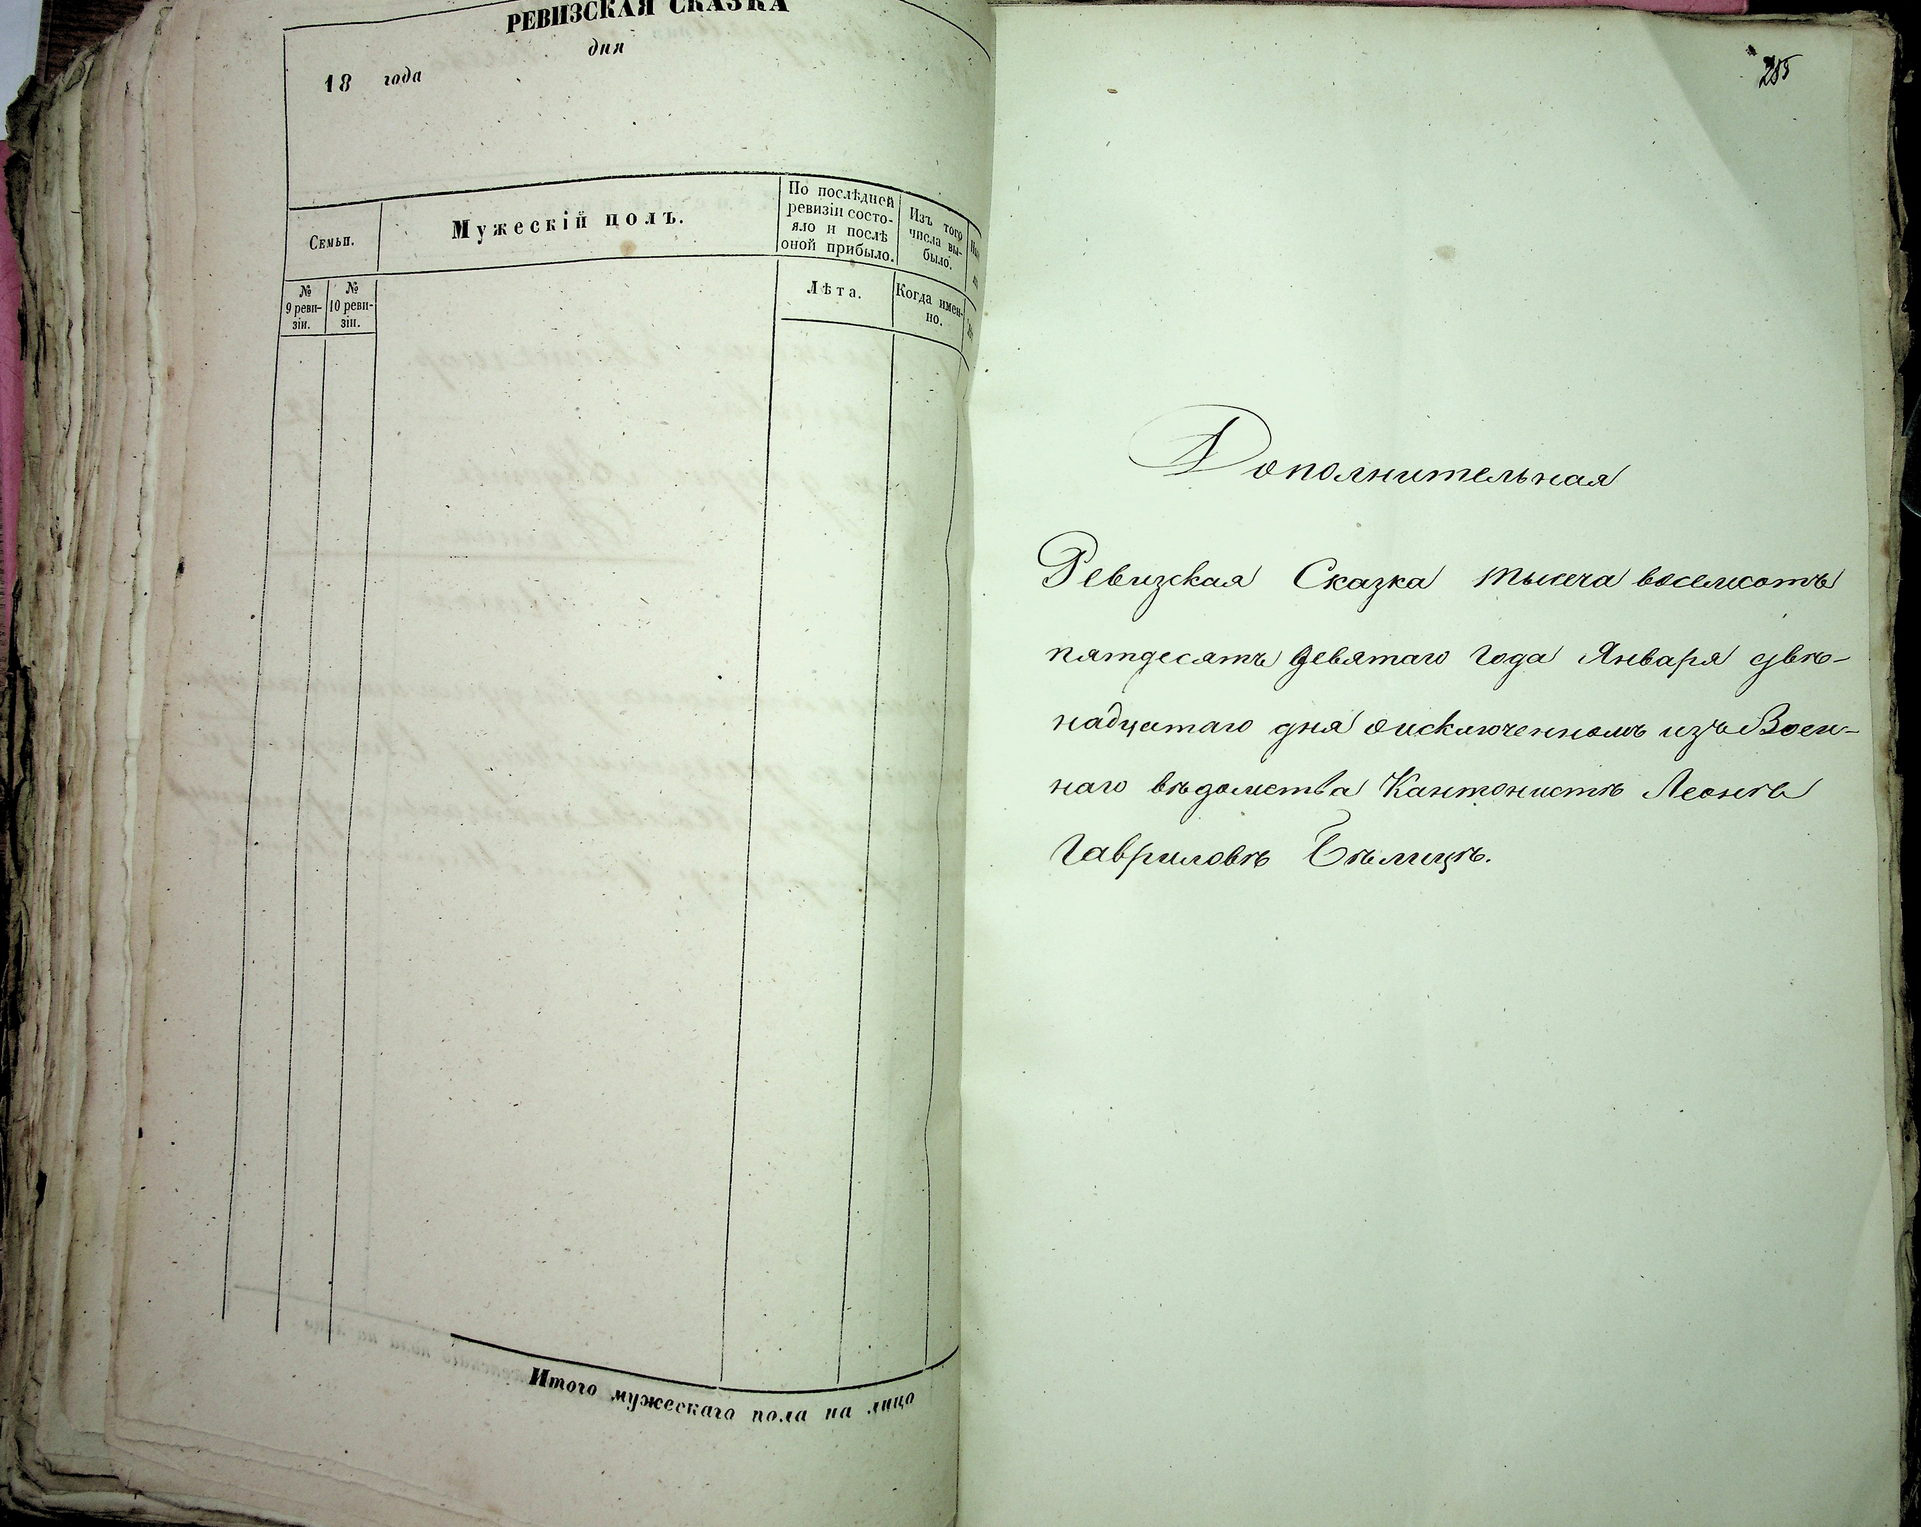 РЕВИЗСКАЯ СКАЗКА
дня
18 года
Семьи.
Мужескій полъ.
По послѣдней
ревизіи состо-
яло и послѣ
оной прибыло.
Изъ того
числа вы-
было.
№
9 реви-
зіи.
№
10 реви-
зіи.
Лѣта.
Когда имен-
но.
Итого мужескаго пола на лицо
285
Дополнительная
Ревизская Сказка тысеча восемсотъ
пятдесятъ девятаго года Января двѣ-
надцатаго дня о исключенномъ изъ Воен-
наго вѣдомства Кантонистѣ Леонѣ
Гавриловѣ Бѣлицѣ.